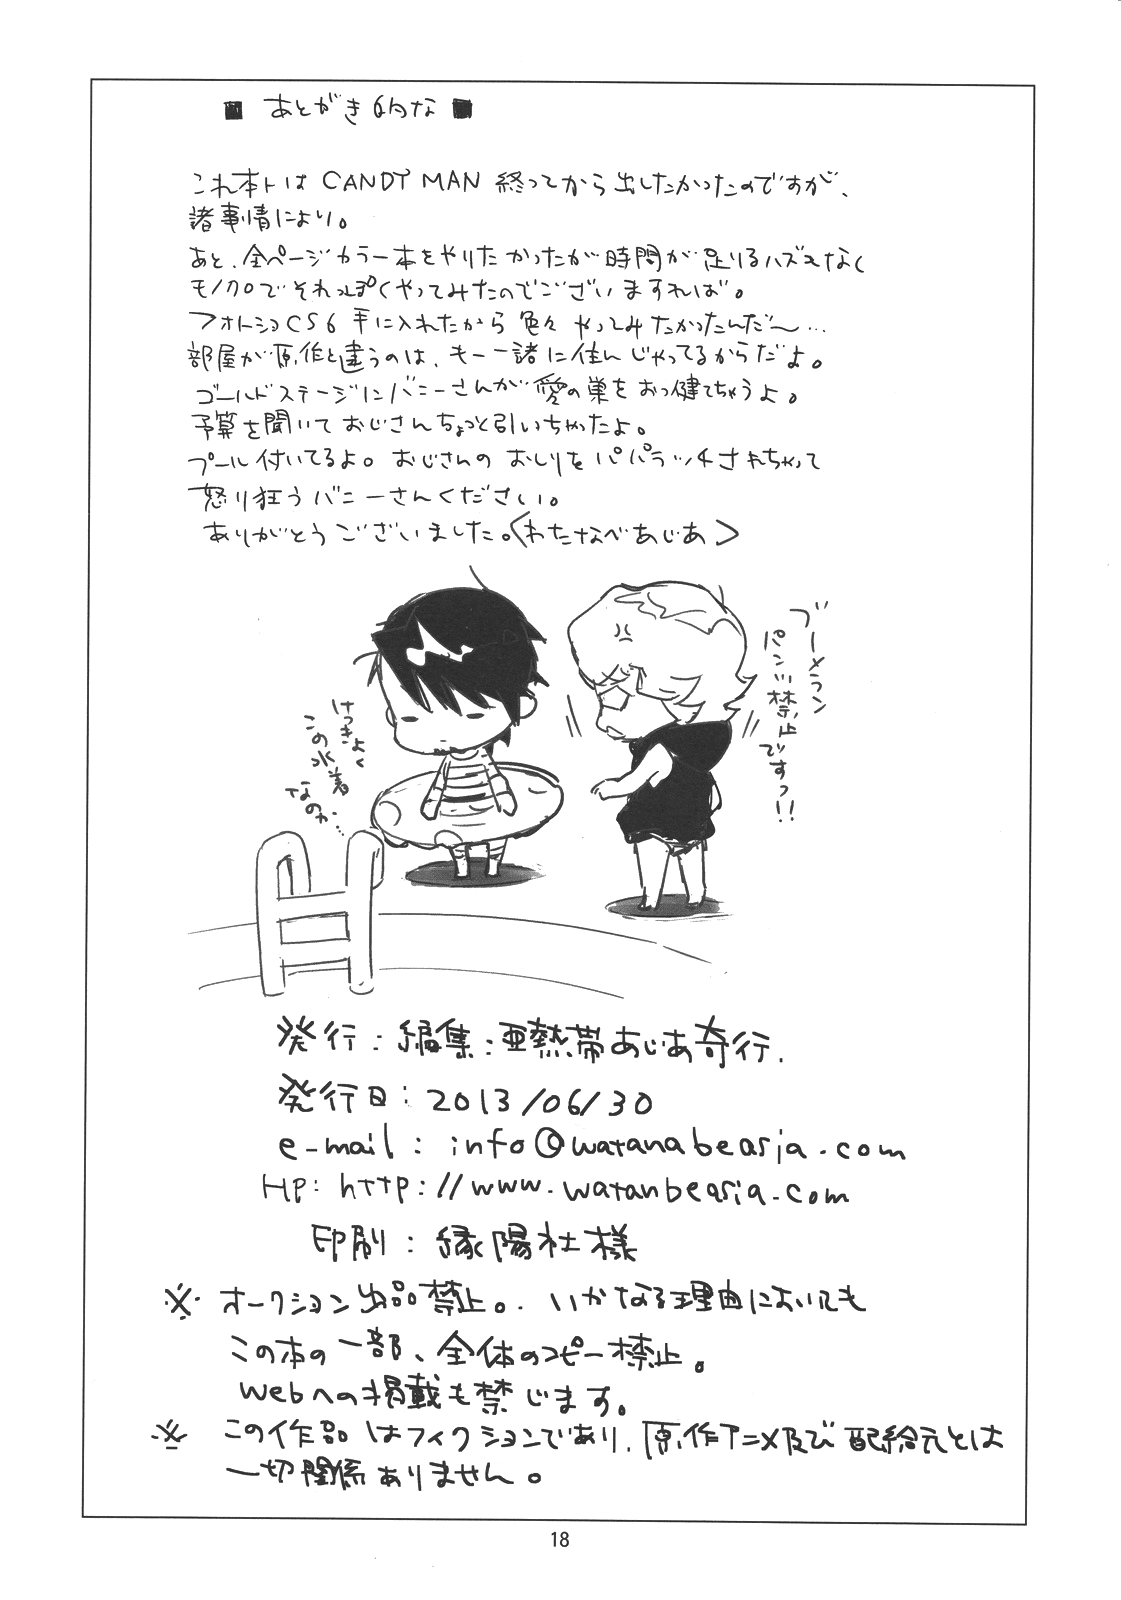 ■ あとがき的な ■
これ本トは CANDY MAN 終ってから出したかったのですが、
諸事情により。
あと、全ページカラー本をやりたかったが時間が足りるハズもなく
モノクロでそれっぽくやってみたのでございますれば。
フォトショCS6 手に入れたから 色々 やってみたかったんだ〜…
部屋が原作と違うのは、もー一諸に住んじゃってるからだよ。
ゴールドステージにバニーさんが愛の巣をおっ健てちゃうよ。
予算を聞いておじさんちょっと引いちゃったよ。
プール付いてるよ。おじさんのおしりをパパラッチされちゃって
怒り狂うバニーさんください。
ありがとうございました。<わたなべあじあ>
ブーメラン
パンツ禁止
ですっ!!
けっきょく
この水着
なのか…
発行:編集:亜熱帯あじあ奇行.
発行日:2013/06/30
e-mail: info@watanabeasia.com
HP: http://www.watanbeasia.com
印刷: 縁陽社様
※ オークション出品禁止。. いかなる理由においても
この本の一部、全体のコピー禁止。
Webへの掲載も禁じます。
※ この作品はフィクションであり、原作アニメ及び配給元とは
一切関係ありません。
18